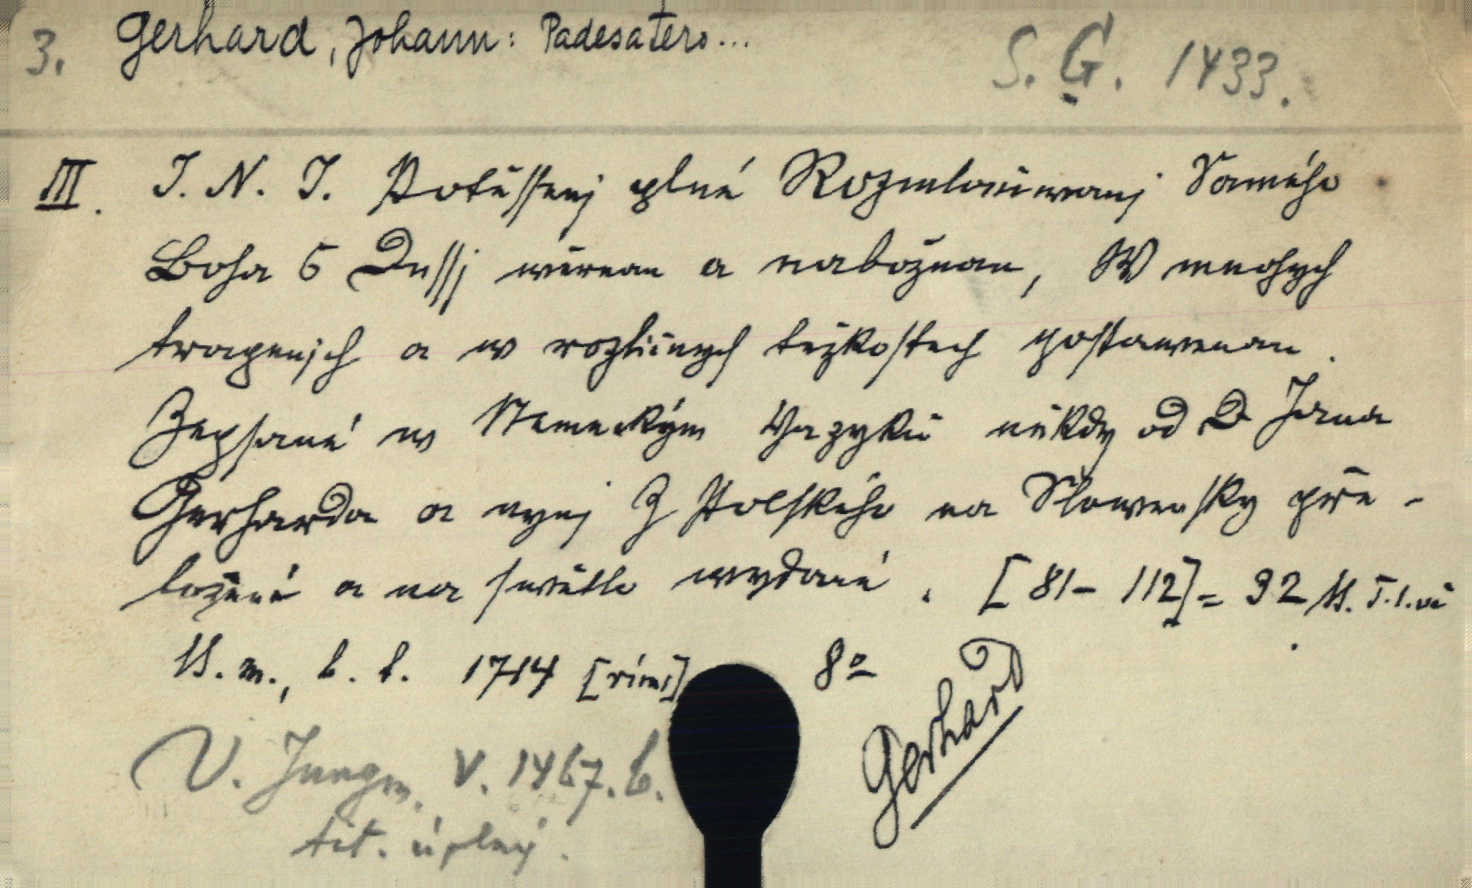 3. Gerhard, Johann: Padesatero...
S. G. 1433.
III. J. N. J. Potěssenj plné Rozmlouwanj Samého
Boha S Dussj wěrnau a nabožnau, W mnohych
trapenjch a w rozličnych težkostech postawenau.
Zepsané w Nemeckým Yazyku někdy od D Jana
Gerharda a nynj Z Polského na Slowensky pře-
ložené a na swětlo wydané. [81-112] = 32 ll.
1714 [rimi] 8º
V. Jungm. V. 1467. b.
tit. úplný.
Gerhard